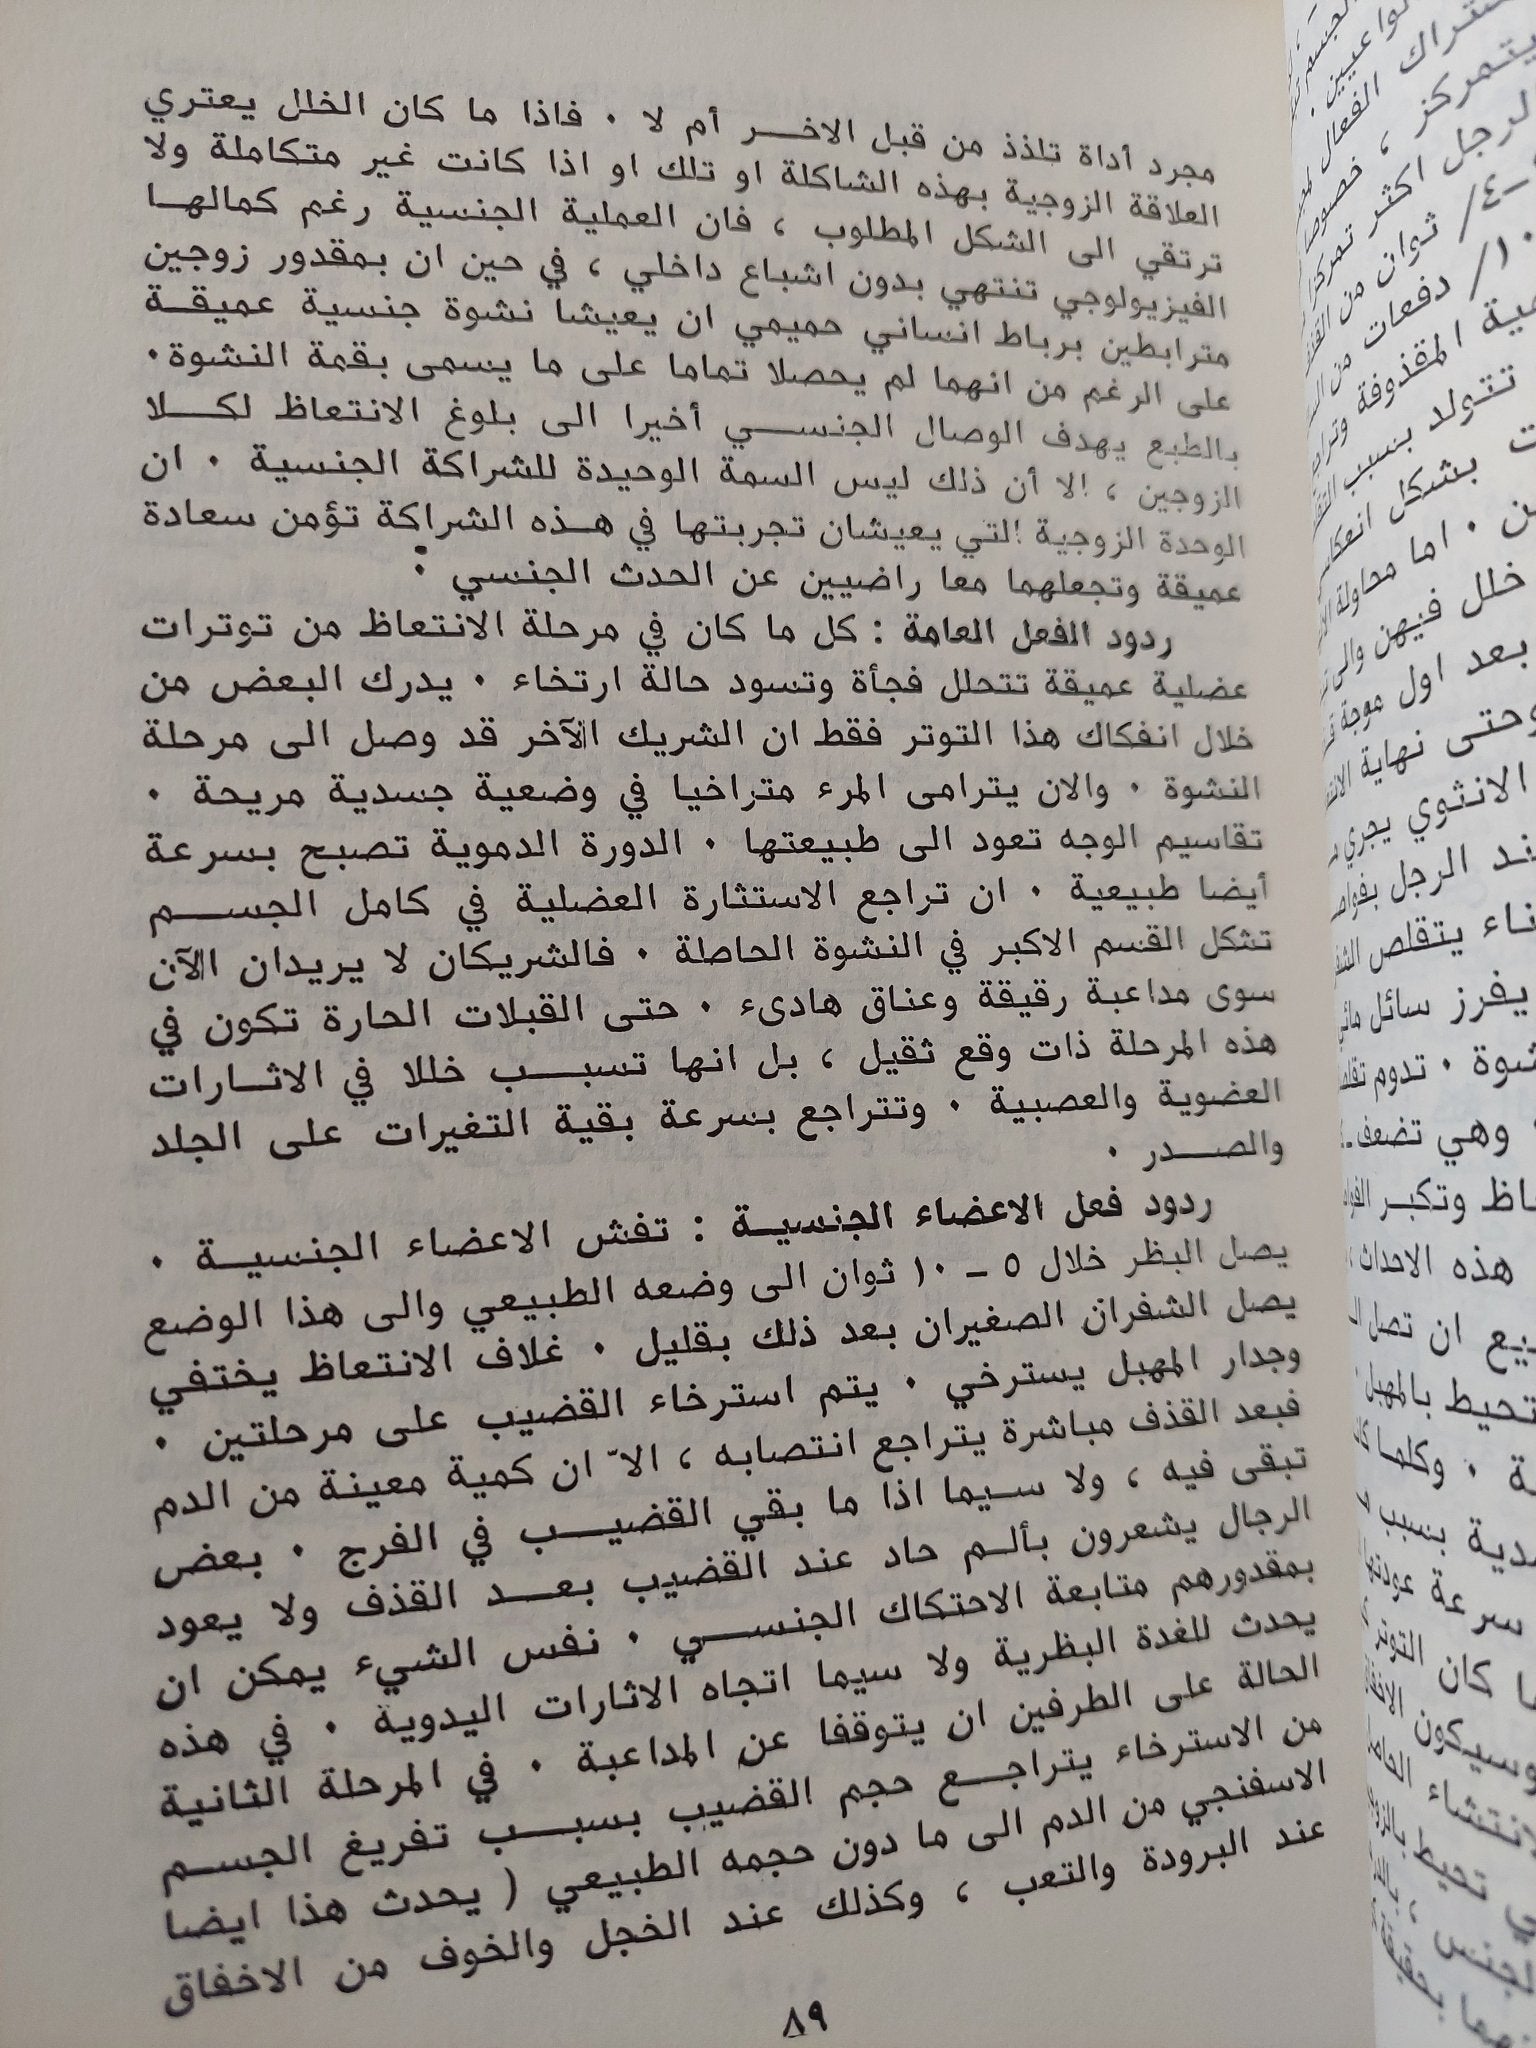 مجرد أداة تلذذ من قبل الاخـــر أم لا ٠ فاذا ما كان الخلل يعتري
العلاقة الزوجية بهذه الشاكلة او تلك او اذا كانت غير متكاملة ولا
ترتقي الى الشكل المطلوب ، فان العملية الجنسية رغم كمالهـا
الفيزيولوجي تنتهي بدون اشباع داخلي ، في حين ان بمقدور زوجين
مترابطين برباط انساني حميمي ان يعيشا نشوة جنسية عميقـة
على الرغم من انهما لم يحصلا تماما على ما يسمى بقمة النشوة٠
بالطبع يهدف الوصال الجنســـي أخيرا الى بلوغ الانتعاظ لكــلا
الزوجين ، إلا أن ذلك ليس السمة الوحيدة للشراكة الجنسية ٠ ان
الوحدة الزوجية التي يعيشان تجربتها في هـذه الشراكة تؤمن سعادة
عميقة وتجعلهما معا راضيين عن الحدث الجنسي ٠
ردود الفعل العامة : كل ما كان في مرحلة الانتعاظ من توترات
عضلية عميقة تتحلل فجأة وتسود حالة ارتخاء ٠ يدرك البعض من
خلال انفكاك هذا التوتر فقط ان الشريك الآخر قد وصل الى مرحلة
النشوة ٠ والان يترامى المرء متراخيا في وضعية جسدية مريحة ٠
تقاسيم الوجه تعود الى طبيعتها ٠ الدورة الدموية تصبح بسرعة
أيضا طبيعية ٠ ان تراجع الاستثارة العضلية في كامل الجســـم
تشكل القسم الاكبر في النشوة الحاصلة ٠ فالشريكان لا يريدان الآن
سوى مداعبة رقيقة وعناق هادىء ٠ حتى القبلات الحارة تكون في
هذه المرحلة ذات وقع ثقيل ، بل انها تسبــب خللا في الاثـارات
العضوية والعصبية ٠ وتتراجع بسرعة بقية التغيرات على الجلد
والصــدر ٠
ردود فعل الاعضاء الجنسيـة : تفش الاعضاء الجنسيـة ٠
يصل البظر خلال ٥ ـ ١٠ ثوان الى وضعه الطبيعي والى هذا الوضع
يصل الشفران الصغيران بعد ذلك بقليل ٠ غلاف الانتعاظ يختفي
وجدار المهبل يسترخي ٠ يتم استرخاء القضيب على مرحلتين ٠
فبعد القذف مباشرة يتراجع انتصابه ، الاّ ان كمية معينة من الدم
تبقى فيه ، ولا سيما اذا ما بقي القضيــب في الفرج ٠ بعض
الرجال يشعرون بألـم حاد عند القضيب بعـد القذف ولا يعود
بمقدورهم متابعة الاحتكاك الجنســي ٠ نفس الشيء يمكن ان
يحدث للغدة البظرية ولا سيما اتجاه الاثارات اليدوية ٠ في هذه
الحالة على الطرفين ان يتوقفا عن المداعبة ٠ في المرحلة الثانية
من الاسترخاء يتراجـع حجم القضيب بسبــب تفريغ الجسـم
الاسفنجي من الدم الى ما دون حجمه الطبيعي ( يحدث هذا ايضا
عند البرودة والتعب ، وكذلك عند الخجل والخوف من الاخفاق
٨٩